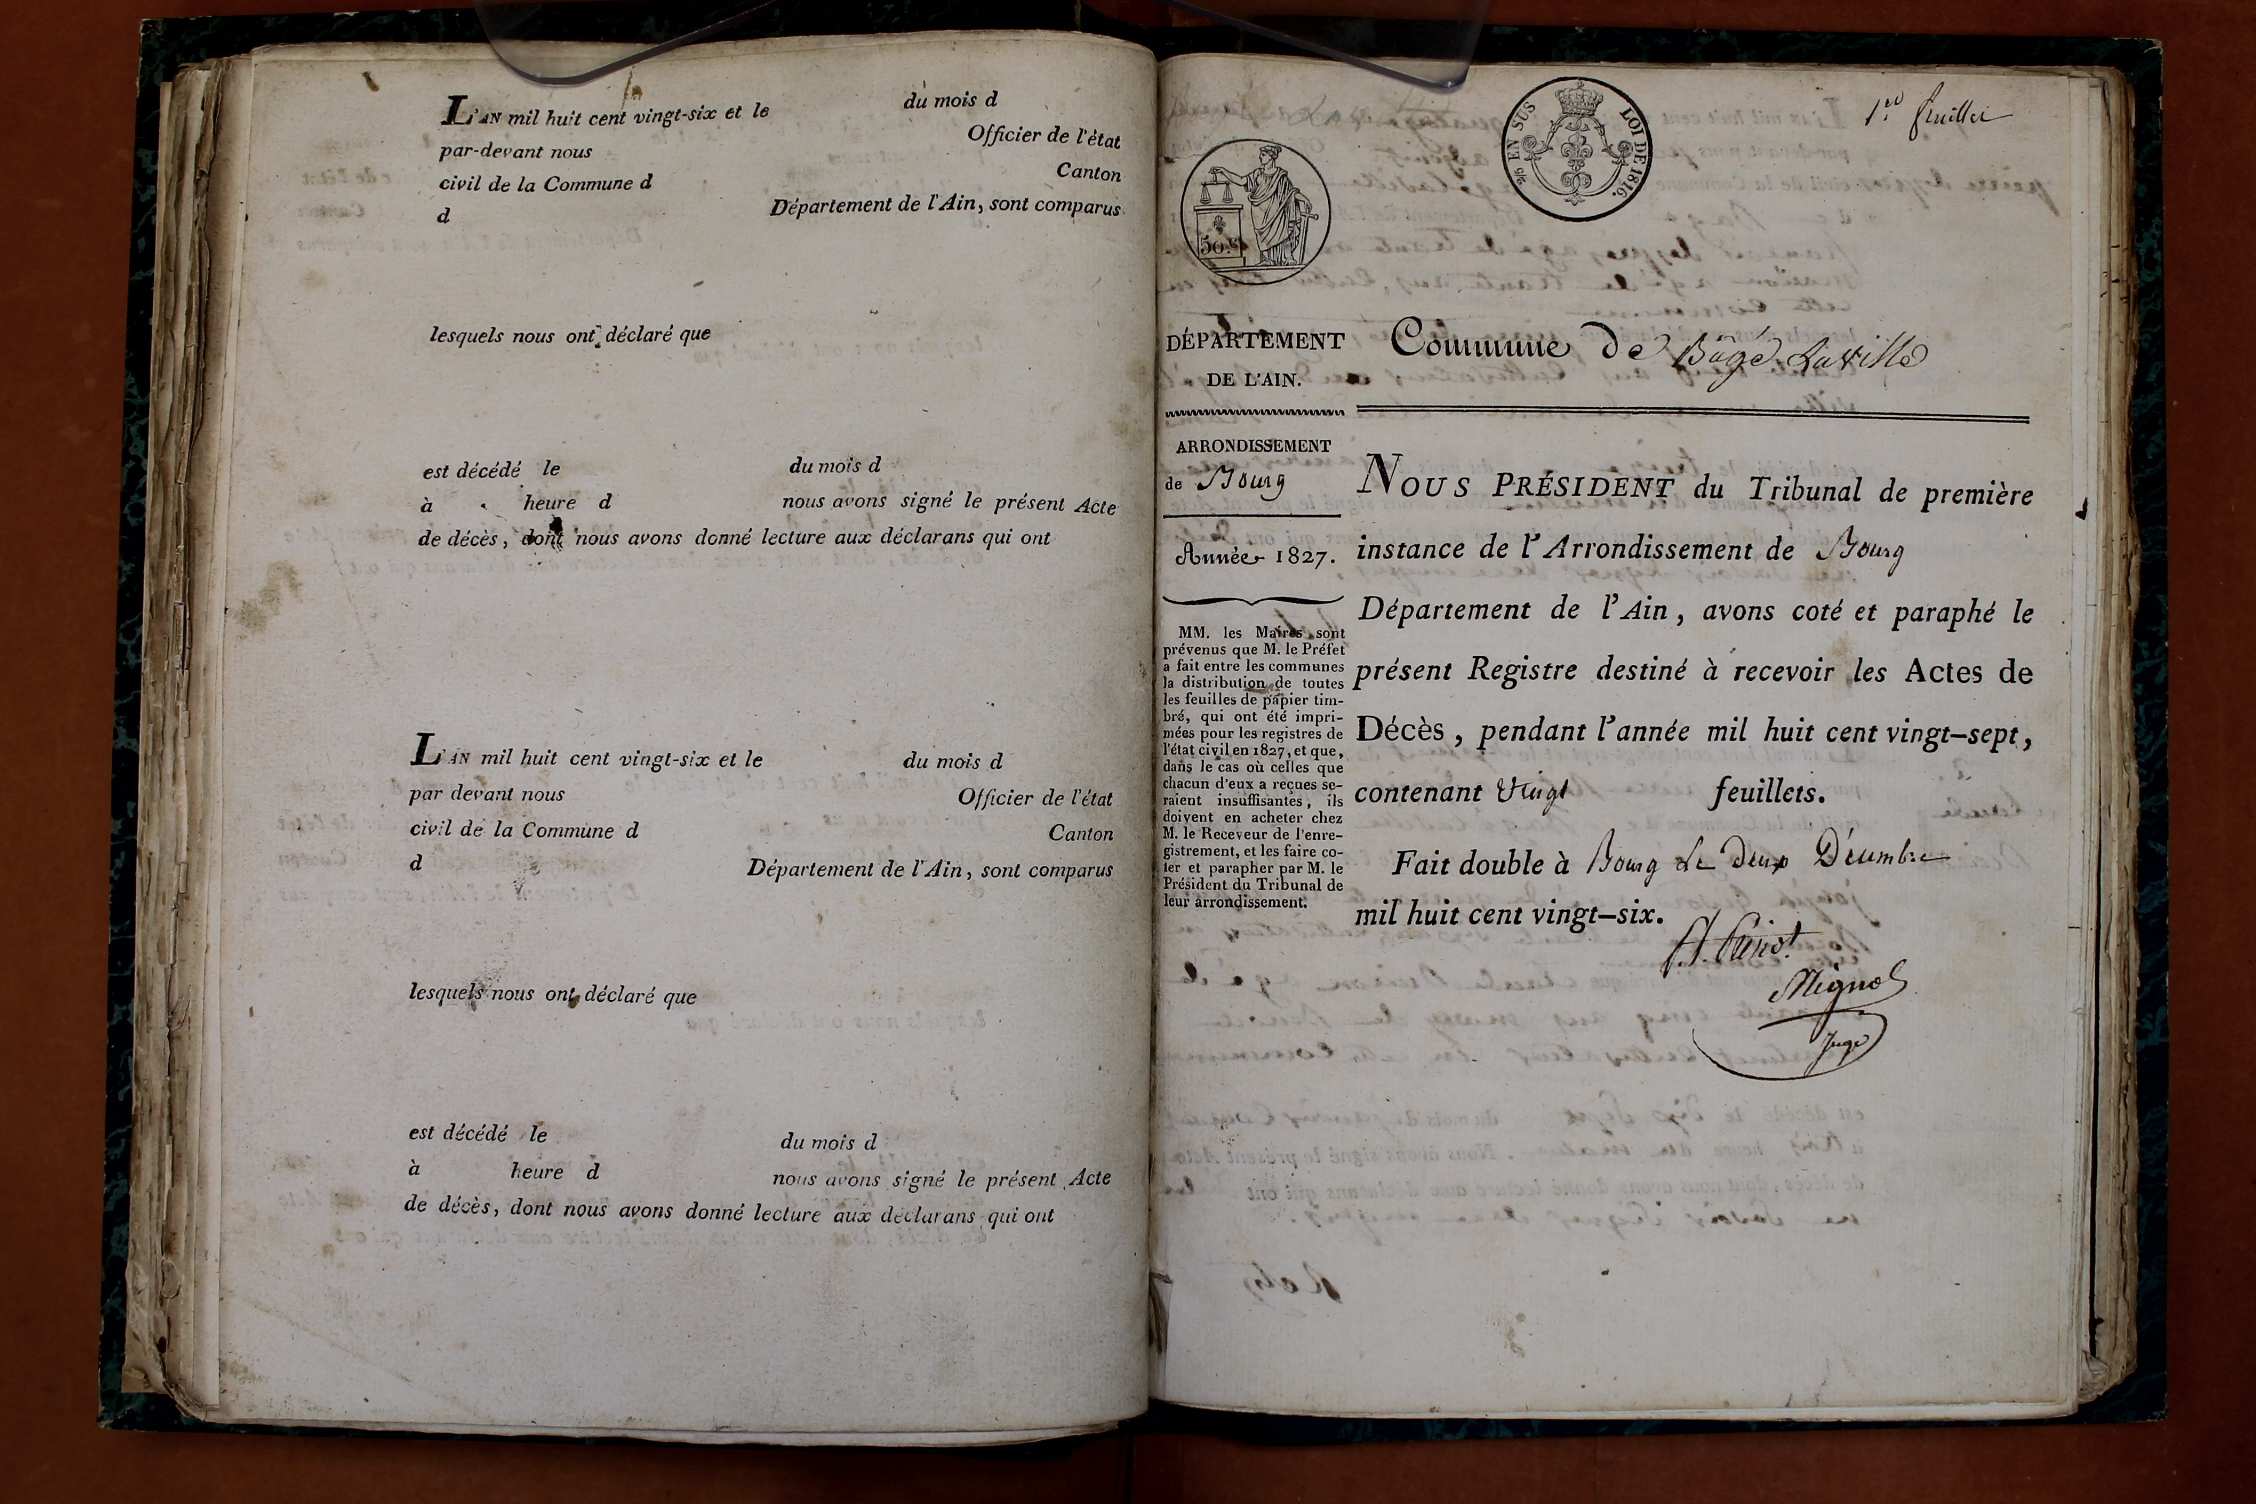 L'AN mil huit cent vingt-six et le du mois d
par-devant nous Officier de l'état
civil de la Commune d Canton
d Département de l'Ain, sont comparus
lesquels nous ont déclaré que
est décédé le du mois d
à heure d nous avons signé le présent Acte
de décès, dont nous avons donné lecture aux déclarans qui ont
L'AN mil huit cent vingt-six et le du mois d
par devant nous Officier de l'état
civil de la Commune d Canton
d Département de l'Ain, sont comparus
lesquels nous ont déclaré que
est décédé le du mois d
à heure d nous avons signé le présent Acte
de décès, dont nous avons donné lecture aux déclarans qui ont
EN SUS LOI DE 1816.
1er feuillet
50.c
DÉPARTEMENT
DE L'AIN.
ARRONDISSEMENT
de Bourg
Année 1827.
MM. les Maires sont
prévenus que M. le Préfet
a fait entre les communes
la distribution de toutes
les feuilles de papier tim-
bré, qui ont été impri-
mées pour les registres de
l'état civil en 1827, et que,
dans le cas où celles que
chacun d'eux a reçues se-
raient insuffisantes, ils
doivent en acheter chez
M. le Receveur de l'enre-
gistrement, et les faire co-
ter et parapher par M. le
Président du Tribunal de
leur arrondissement.
Commune de Bâgé LaVille
NOUS PRÉSIDENT du Tribunal de première
instance de l'Arrondissement de Bourg
Département de l'Ain, avons coté et paraphé le
présent Registre destiné à recevoir les Actes de
Décès, pendant l'année mil huit cent vingt-sept,
contenant Vingt feuillets.
Fait double à Bourg Le deux Décembre
mil huit cent vingt-six.
Mignot
Juge